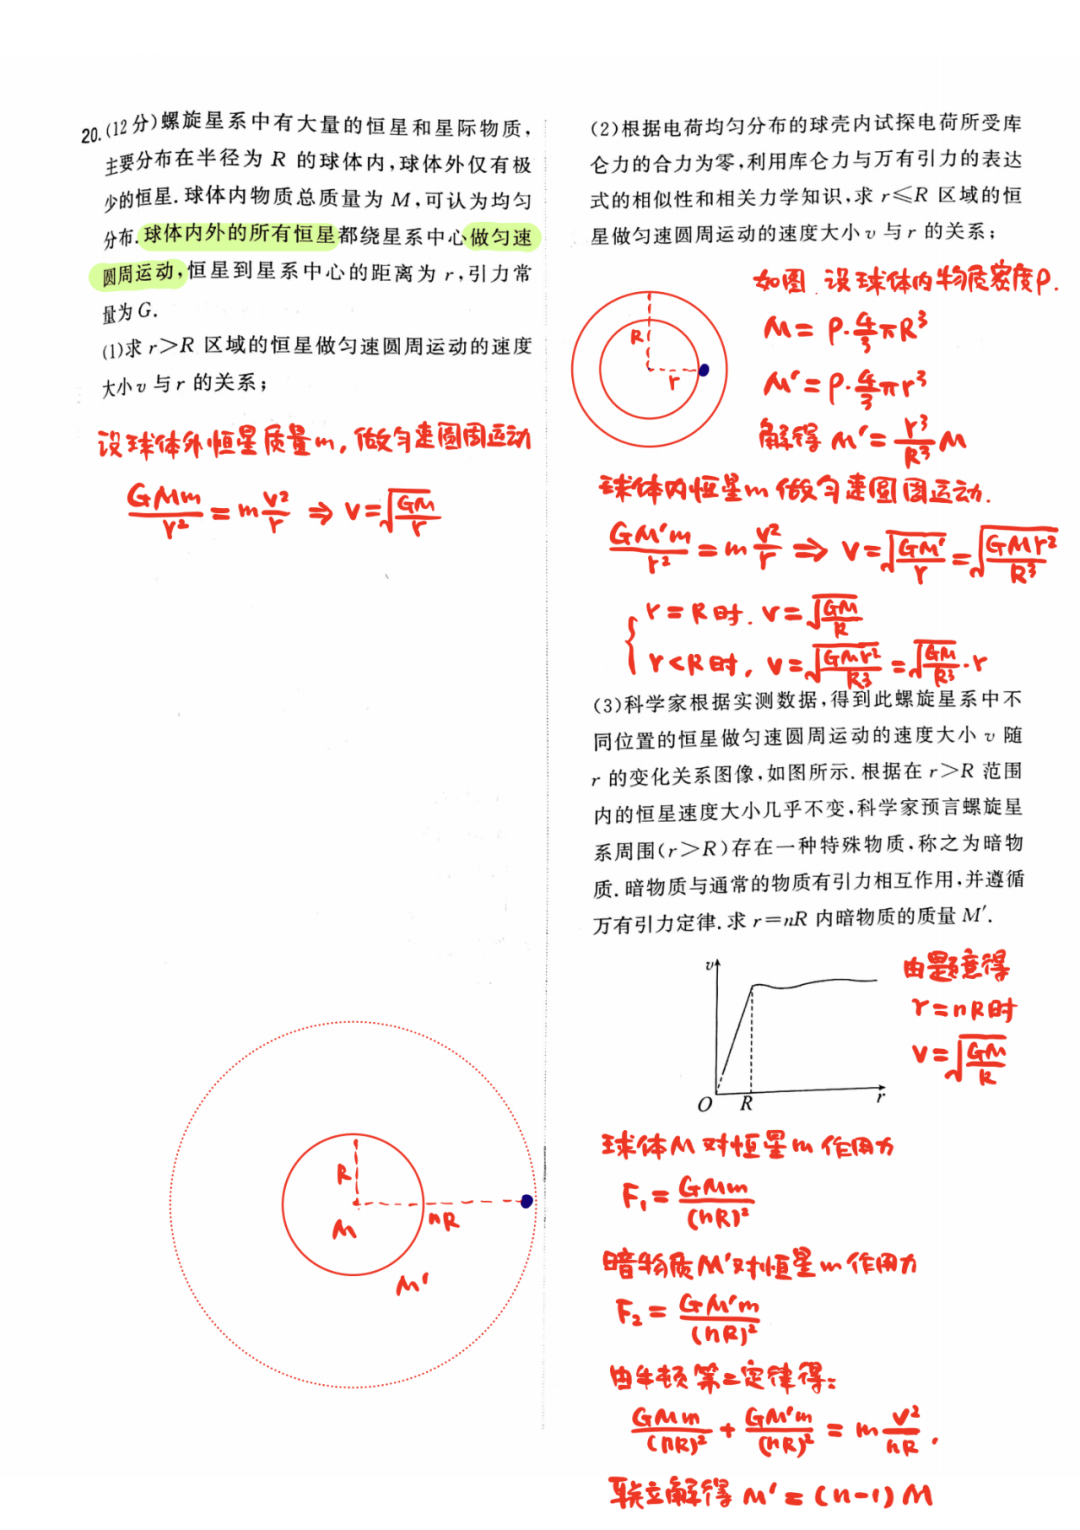 20.(12分)螺旋星系中有大量的恒星和星际物质,
主要分布在半径为 R 的球体内,球体外仅有极
少的恒星.球体内物质总质量为 M,可认为均匀
分布.球体内外的所有恒星都绕星系中心做匀速
圆周运动,恒星到星系中心的距离为 r,引力常
量为 G.
(1)求 r>R 区域的恒星做匀速圆周运动的速度
大小 v 与 r 的关系;
设球体外恒星质量m,做匀速圆周运动
GMm/r² = m v²/r ⇒ v=√(GM/r)
R
M
nR
M′
(2)根据电荷均匀分布的球壳内试探电荷所受库
仑力的合力为零,利用库仑力与万有引力的表达
式的相似性和相关力学知识,求 r≤R 区域的恒
星做匀速圆周运动的速度大小 v 与 r 的关系;
R
r
如图.设球体内物质密度ρ.
M=ρ·4/3πR³
M′=ρ·4/3πr³
解得 M′= r³/R³ M
球体内恒星m做匀速圆周运动.
GM′m/r² = m v²/r ⇒ v=√(GM′/r)=√(GMr²/R³)
r=R时.v=√(GM/R)
r<R时,v=√(GMr²/R³)=√(GM/R³)·r
(3)科学家根据实测数据,得到此螺旋星系中不
同位置的恒星做匀速圆周运动的速度大小 v 随
r 的变化关系图像,如图所示.根据在 r>R 范围
内的恒星速度大小几乎不变,科学家预言螺旋星
系周围(r>R)存在一种特殊物质,称之为暗物
质.暗物质与通常的物质有引力相互作用,并遵循
万有引力定律.求 r=nR 内暗物质的质量 M′.
v
O
R
r
由题意得
r=nR时
v=√(GM/R)
球体M对恒星m作用力
F₁= GMm/(nR)²
暗物质M′对恒星m作用力
F₂= GM′m/(nR)²
由牛顿第二定律得:
GMm/(nR)² + GM′m/(nR)² = m v²/nR.
联立解得 M′=(n-1)M